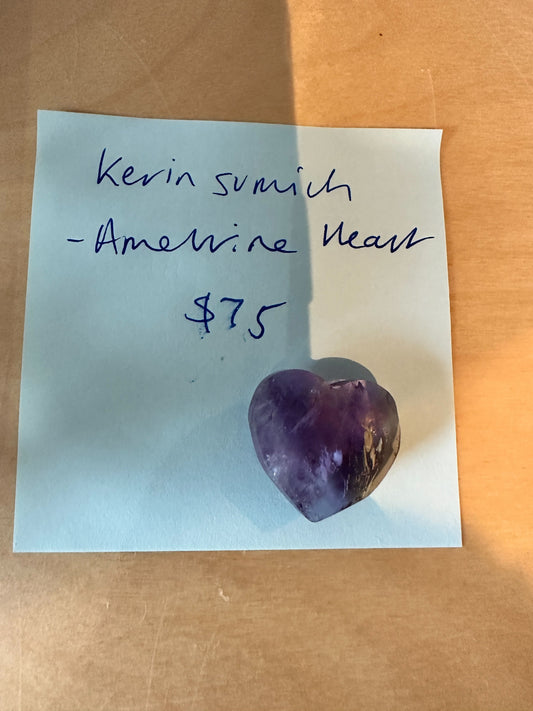 Kevin sumich
- Ametrine Heart
$75